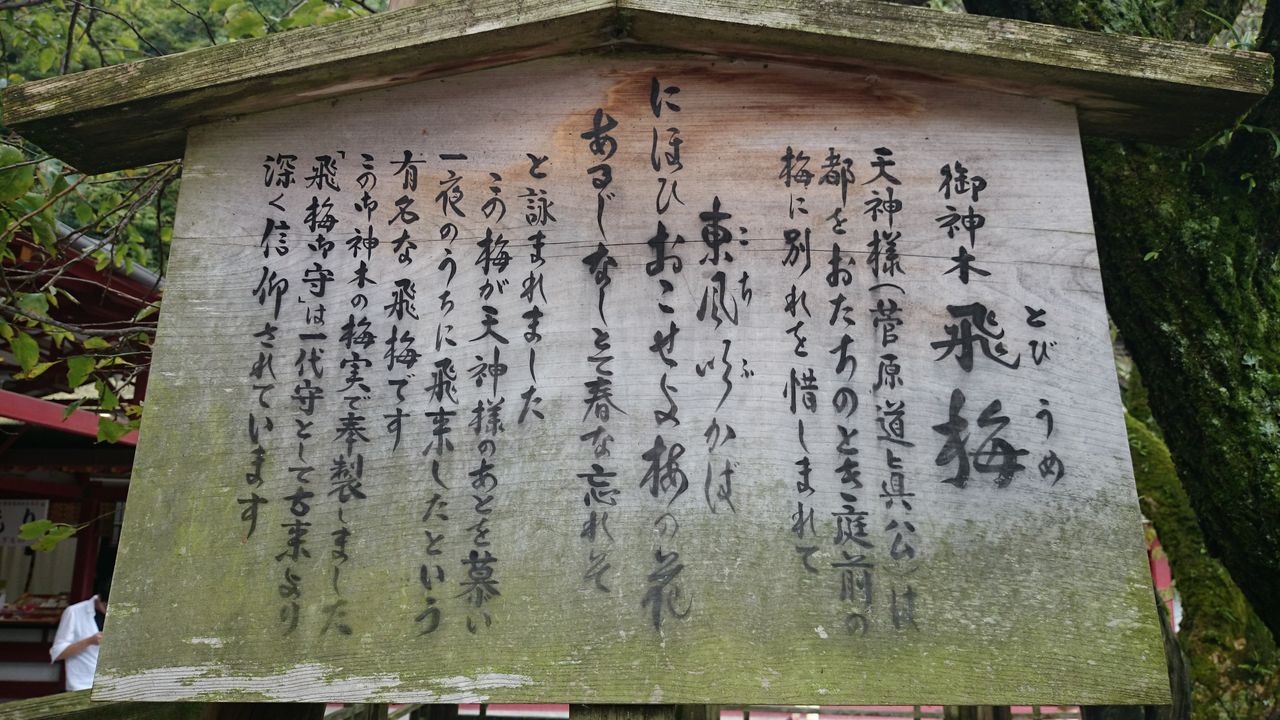 とびうめ
御神木 飛梅
天神様(菅原道眞公)は
都をおたちのとき庭前の
梅に別れを惜しまれて
こち ふ
東風吹かば
にほひおこせよ梅の花
あるじなしとて春な忘れそ
と詠まれました
この梅が天神様のあとを慕い
一夜のうちに飛来したという
有名な飛梅です
この御神木の梅実で奉製しました
「飛梅御守」は一代守として古来より
深く信仰されています